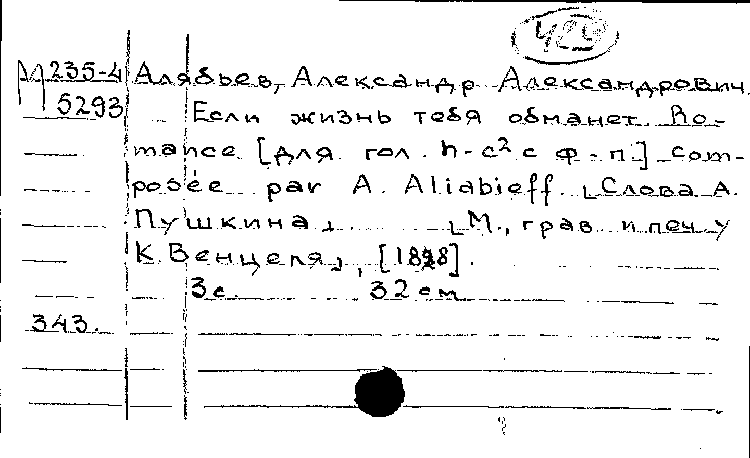 М 235-4 Алябьев, Александр Александрович.
5293 Если жизнь тебя обманет. Ro-
mance. [Для гол. h-c² с ф.-п.] Com-
posée par A. Aliabieff. ⌊Слова А.
Пушкина⌋. ⌊М., грав. и печ. у
К. Венцеля⌋, [1828].
3 с. 32 см
343.